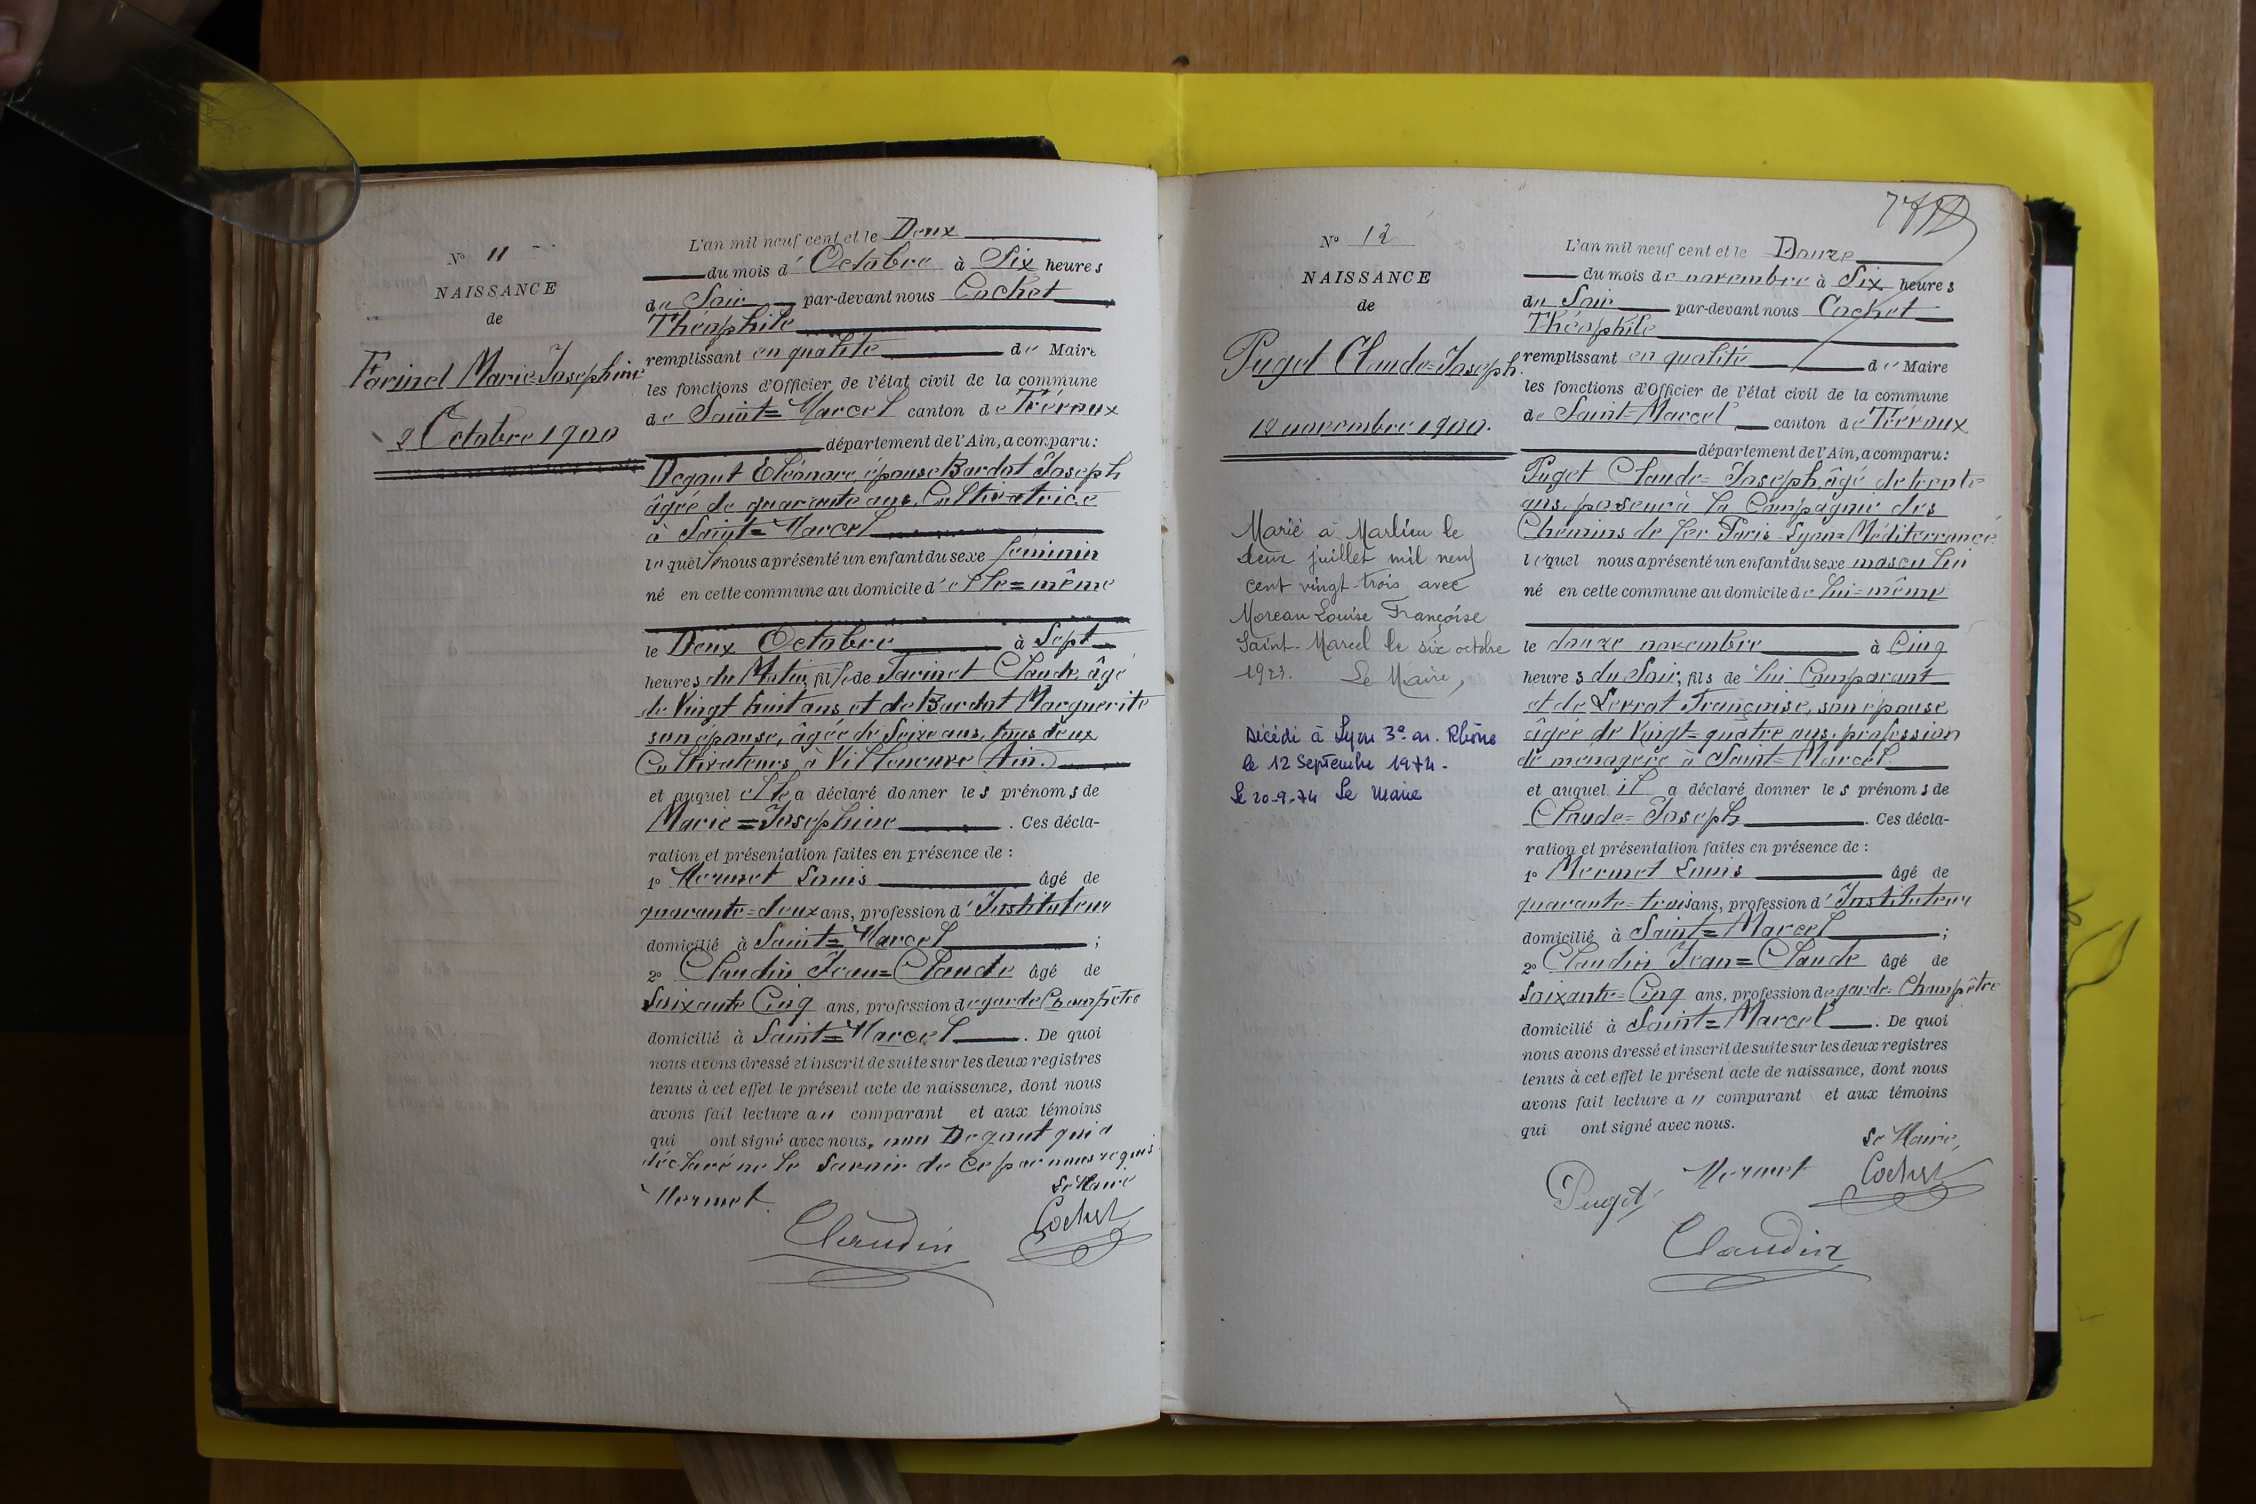 N° 11
NAISSANCE
de
Farinet Marie=Joséphine
2 Octobre 1900
L'an mil neuf cent et le Deux
du mois d' Octobre à Six heures
du Soir par-devant nous Cochet
Théophile
remplissant en qualité de Maire
les fonctions d'Officier de l'état civil de la commune
de Saint=Marcel canton de Trévoux
département de l'Ain, a comparu:
Degaut Eléonore, épouse Bardot Joseph
âgée de quarante ans, Cultivatrice
à Saint=Marcel
laquelle nous a présenté un enfant du sexe féminin
né en cette commune au domicile d'elle=même
le Deux Octobre à Sept
heures du Matin, fille de Farinet Claude, âgé
de Vingt huit ans et de Bardot Marguerite
son épouse, âgée de Seize ans, tous deux
Cultivateurs, à Villeneuve (Ain.)
et auquel elle a déclaré donner les prénoms de
Marie=Joséphine. Ces décla-
ration et présentation faites en présence de :
1° Mermet Louis âgé de
quarante=deux ans, profession d'Instituteur
domicilié à Saint=Marcel ;
2° Claudin Jean=Claude âgé de
Soixante Cinq ans, profession de garde Champêtre
domicilié à Saint=Marcel. De quoi
nous avons dressé et inscrit de suite sur les deux registres
tenus à cet effet le présent acte de naissance, dont nous
avons fait lecture au comparant et aux témoins
qui ont signé avec nous, non Degaut qui a
déclaré ne le savoir de ce par nous requis
Le Maire
Mermet
Claudin
Cochet
N° 12
NAISSANCE
de
Puget Claude=Joseph.
12 novembre 1900.
Marié à Marlieu le
deux juillet mil neuf
cent vingt-trois avec
Moreau Louise Françoise
Saint-Marcel le six octobre
1923. Le Maire,
Décédé à Lyon 3e ar. Rhône
le 12 Septembre 1974.
Le 20-9-74 Le Maire
L'an mil neuf cent et le Douze
du mois de novembre à Six heures
du Soir par-devant nous Cochet
Théophile
remplissant en qualité de Maire
les fonctions d'Officier de l'état civil de la commune
de Saint=Marcel canton de Trévoux
département de l'Ain, a comparu:
Puget Claude=Joseph, âgé de trente
ans, poseur à la Compagnie des
Chemins de fer Paris-Lyon=Méditerranée
lequel nous a présenté un enfant du sexe masculin
né en cette commune au domicile de lui=même
le douze novembre à Cinq
heures du Soir, fils de lui Comparant
et de Perrat Françoise, son épouse
âgée de Vingt=quatre ans, profession
de ménagère à Saint=Marcel
et auquel il a déclaré donner les prénoms de
Claude=Joseph. Ces décla-
ration et présentation faites en présence de :
1° Mermet Louis âgé de
quarante=trois ans, profession d'Instituteur
domicilié à Saint=Marcel ;
2° Claudin Jean=Claude âgé de
Soixante=Cinq ans, profession de garde=Champêtre
domicilié à Saint=Marcel. De quoi
nous avons dressé et inscrit de suite sur les deux registres
tenus à cet effet le présent acte de naissance, dont nous
avons fait lecture au comparant et aux témoins
qui ont signé avec nous.
Le Maire,
Puget
Mermet
Cochet
Claudin